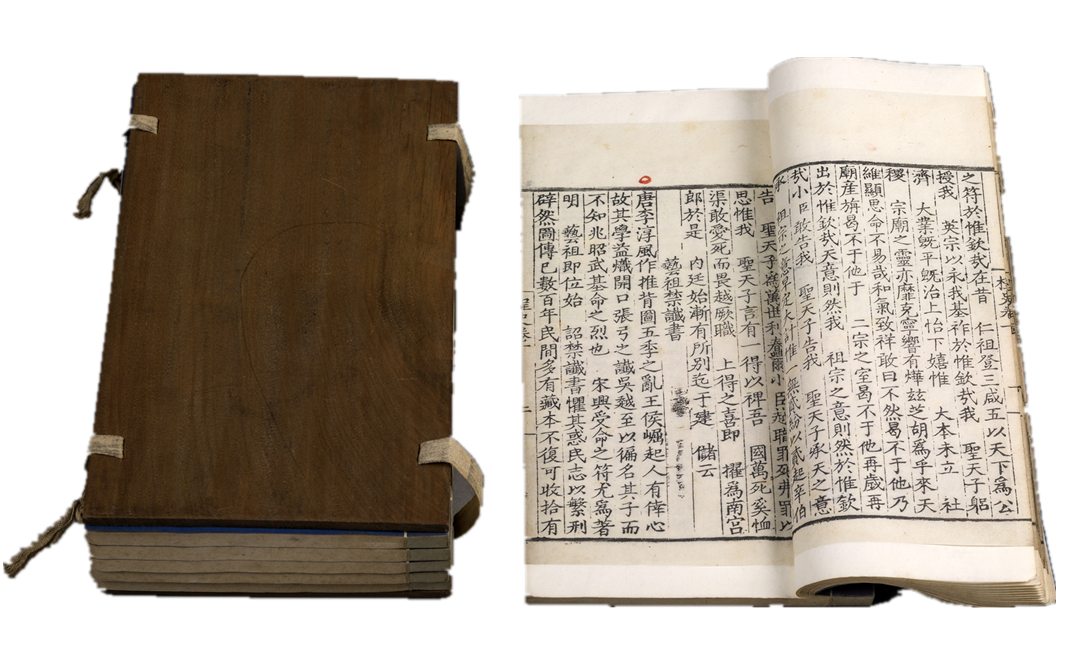 之符於惟欽哉在昔 仁祖登三咸五以天下為公
授我 英宗以永我基祚於惟欽哉我 聖天子躬
濟 大業旣平旣治上怡下嬉惟 大本未立 社
稷 宗廟之靈亦靡克寧響有燁茲芝胡為乎來天
維顯思命不易哉和氣致祥敢曰不然曷不于他乃
廟産旃曷不于他于 二宗之室曷不于他再歲再
出於惟欽哉天意則然我 祖宗之意則然於惟欽
哉小臣敢告我 聖天子告我 聖天子承天之意
承 祖宗之意
告 聖天子為萬世利蠢爾小臣越職罪死弗罪以
思惟我 聖天子言有一得以稗吾 國萬死奚恤
渠敢愛死而畏越厥職 上得之喜即 擢為南宮
郎於是 内廷始漸有所別迄于建 儲云
藝祖禁讖書
唐李淳風作推背圖五季之亂王侯崛起人有倖心
故其學益熾開口張弓之讖吳越至以徧名其子而
不知兆昭武基命之烈也 宋興受命之符尤為著
明 藝祖即位始 詔禁讖書懼其惑民志以繁刑
辟然圖傳已數百年民間多有藏本不復可收拾有